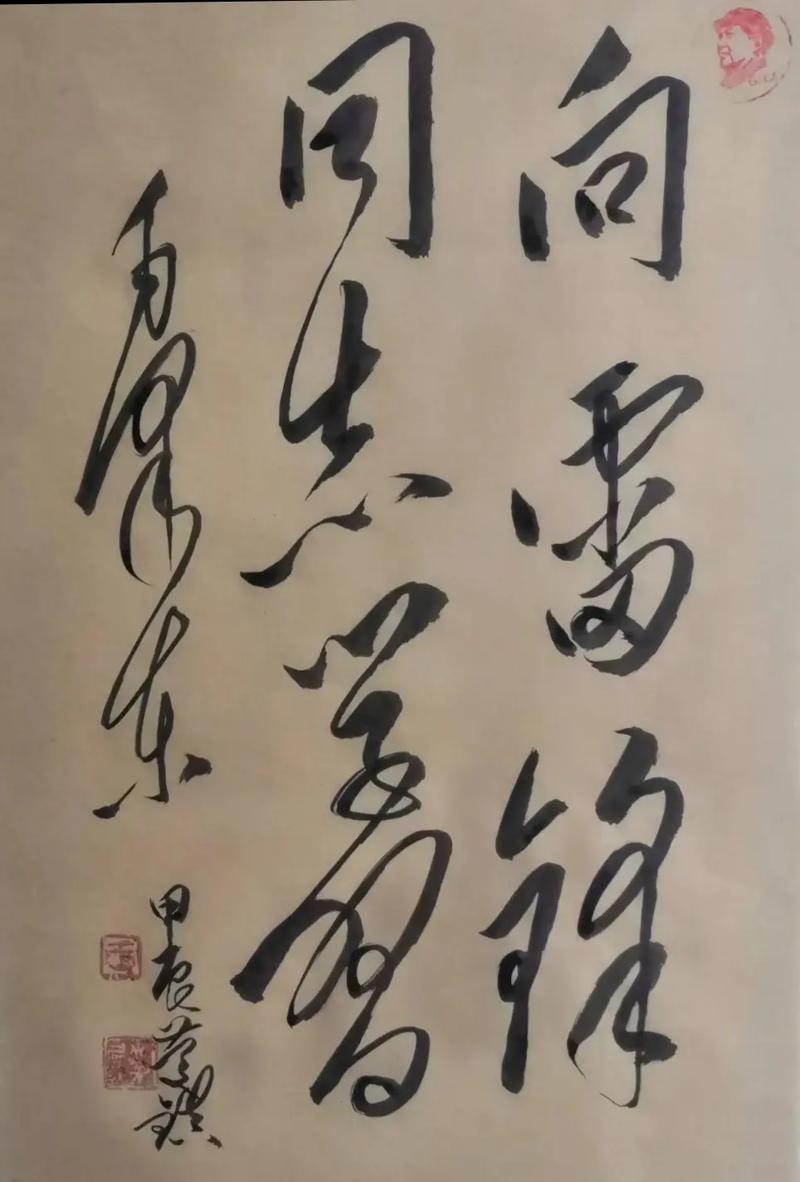 向雷锋
同志学习
毛泽东
甲辰